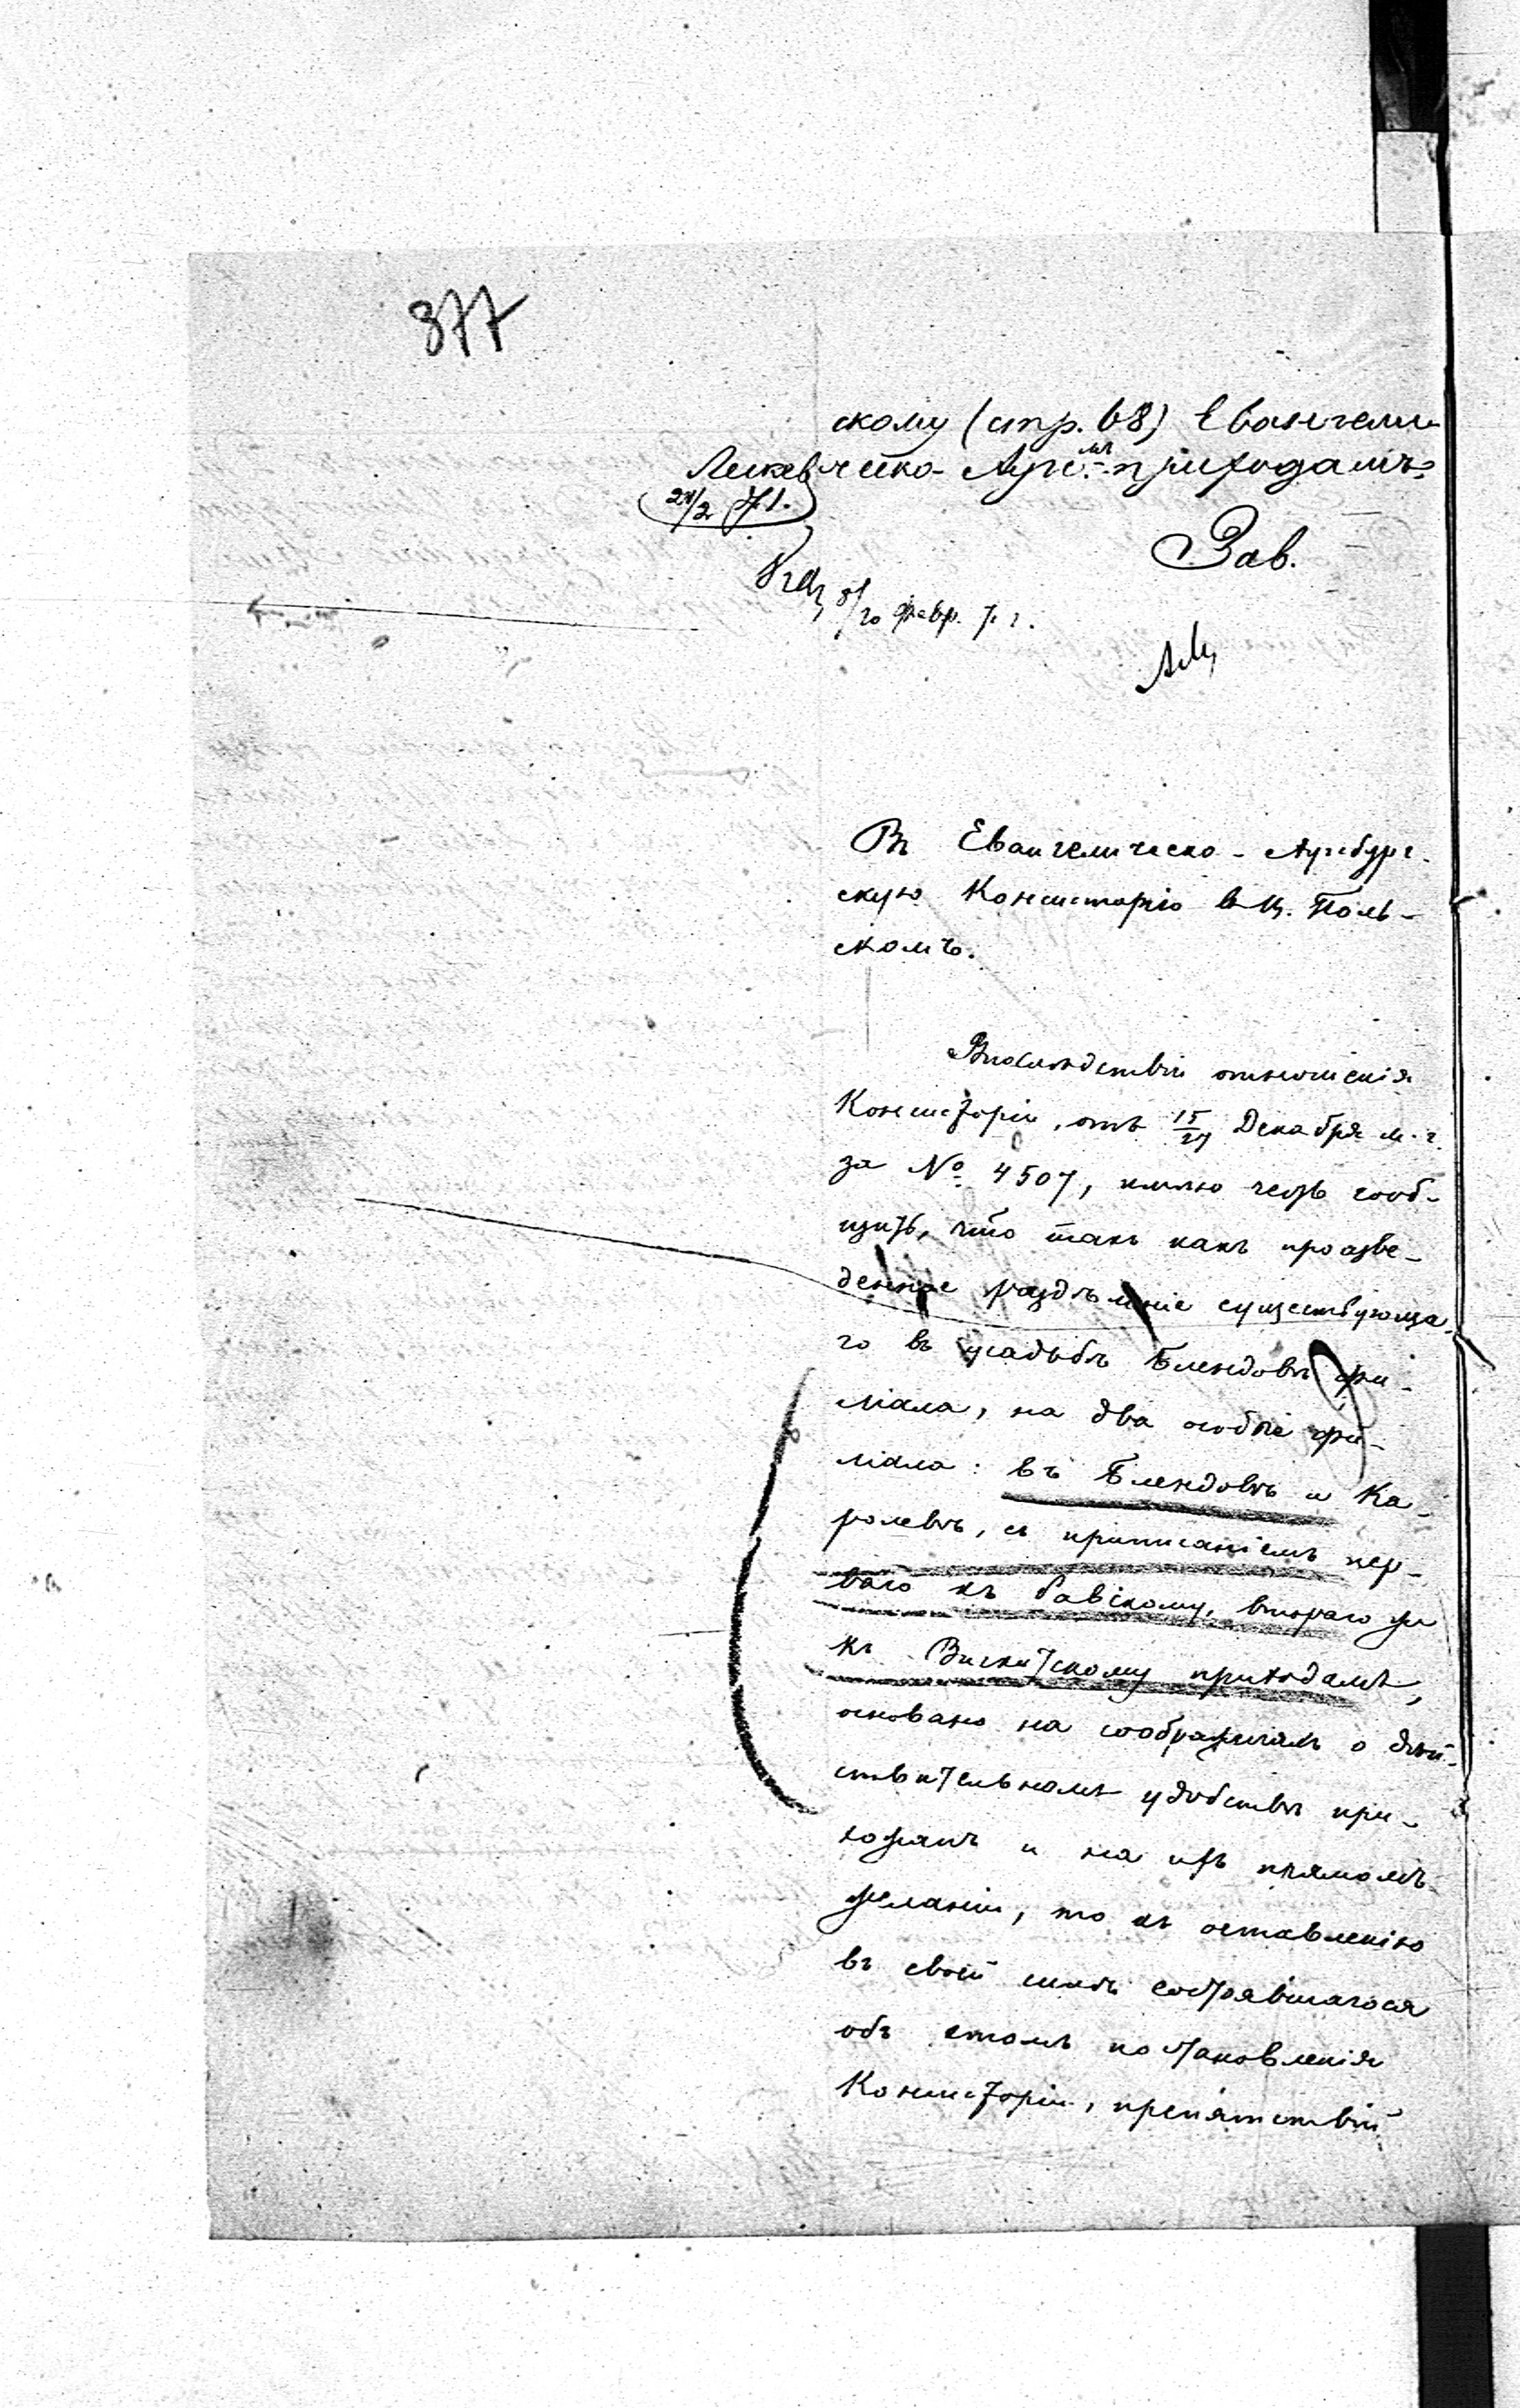 377
скому (стр. 68) Евангели-
ческо- Ауг.-мъ приходамъ.
21/2 71.
Зав.
8/20 февр. 71.
Въ Евангелическо-Аугсбург-
скую Консисторію въ Ц. Поль-
скомъ.
Впослѣдствіи отношенія
Консисторіи, отъ 15/27 Декабря м. г.
за № 4507, имѣю честь сооб-
щить, что такъ какъ произве-
денное раздѣленіе существующа-
го въ усадьбѣ Блендовъ фи-
ліала, на два особые фи-
ліала: въ Блендовѣ и Ка-
ролевѣ, съ приписаніемъ пер-
ваго къ Равскому, втораго же
къ Вискитскому приходамъ,
основано на соображеніяхъ о дѣй-
ствительномъ удобствѣ при-
хожанъ и на ихъ прямомъ
желаніи, то къ оставленію
въ своей силѣ состоявшагося
объ етомъ постановленія
Консисторіи, препятствій